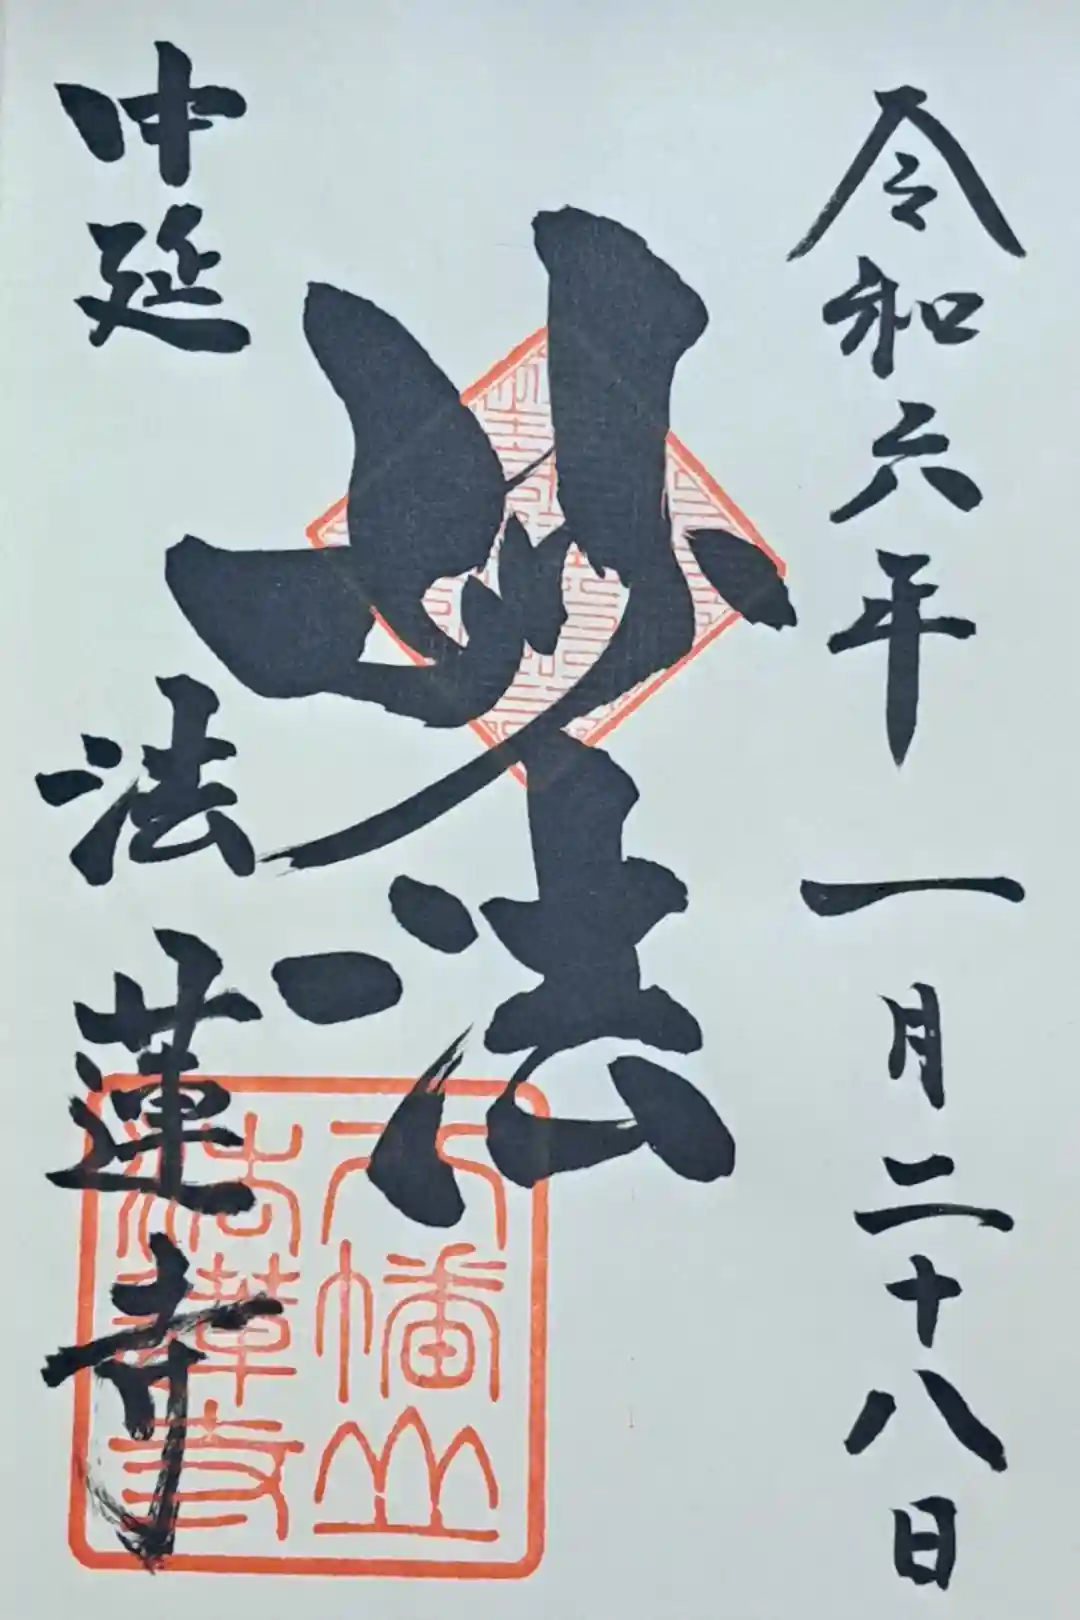 令和六年 一月二十八日
妙法
中延 法蓮寺
八幡山
法蓮寺